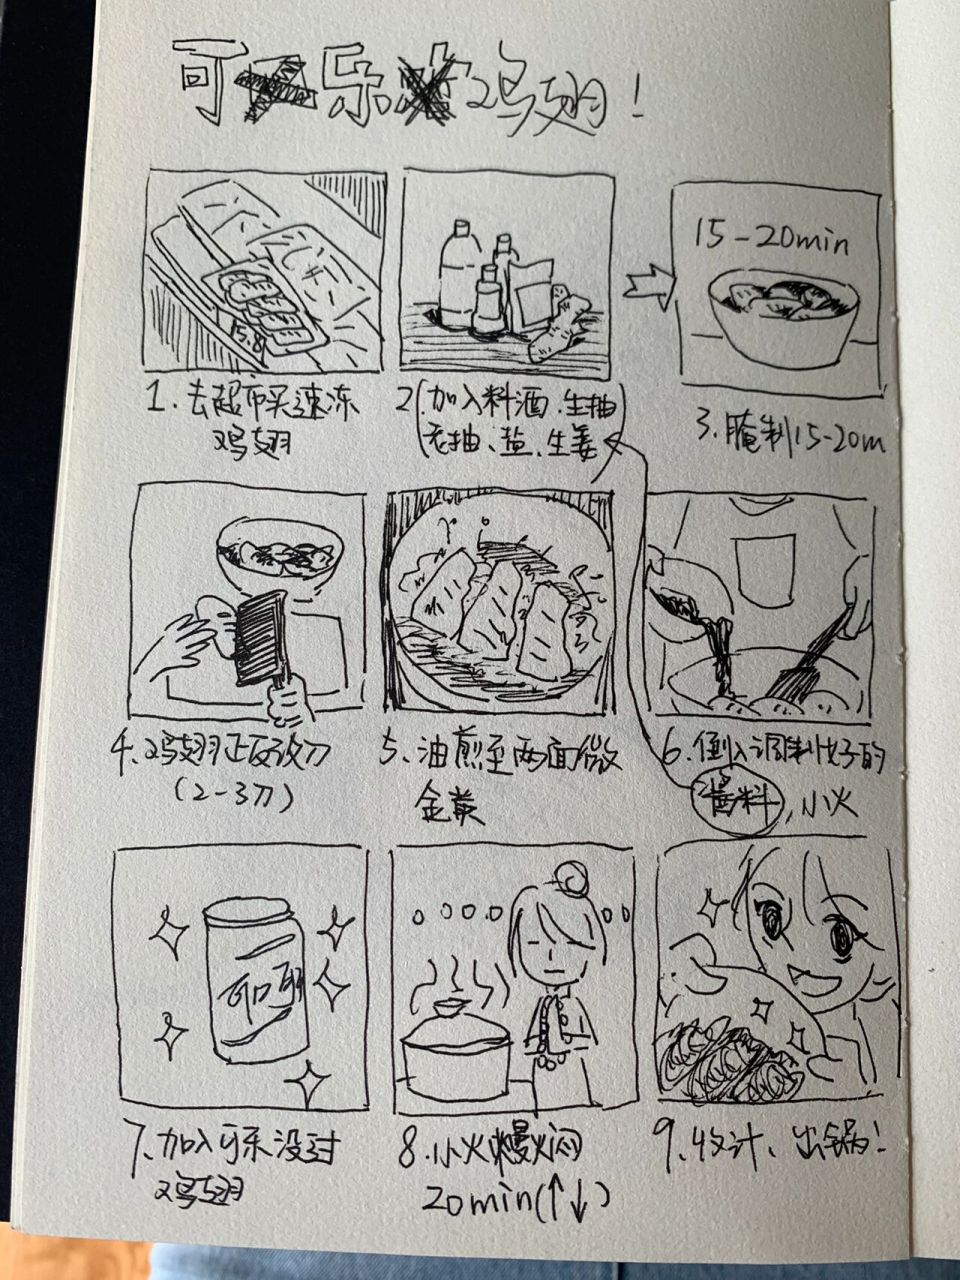 可乐鸡翅！
15.8
15-20min
1.去超市买速冻
鸡翅
2(加入料酒、生抽
老抽、盐、生姜)
3.腌制15-20m
4.鸡翅正反改刀
(2-3刀)
5.油煎至两面微
金黄
6.倒入调制好的
酱料,小火
可口
7.加入可乐没过
鸡翅
8.小火慢焖
20min(↑↓)
9.收汁、出锅!